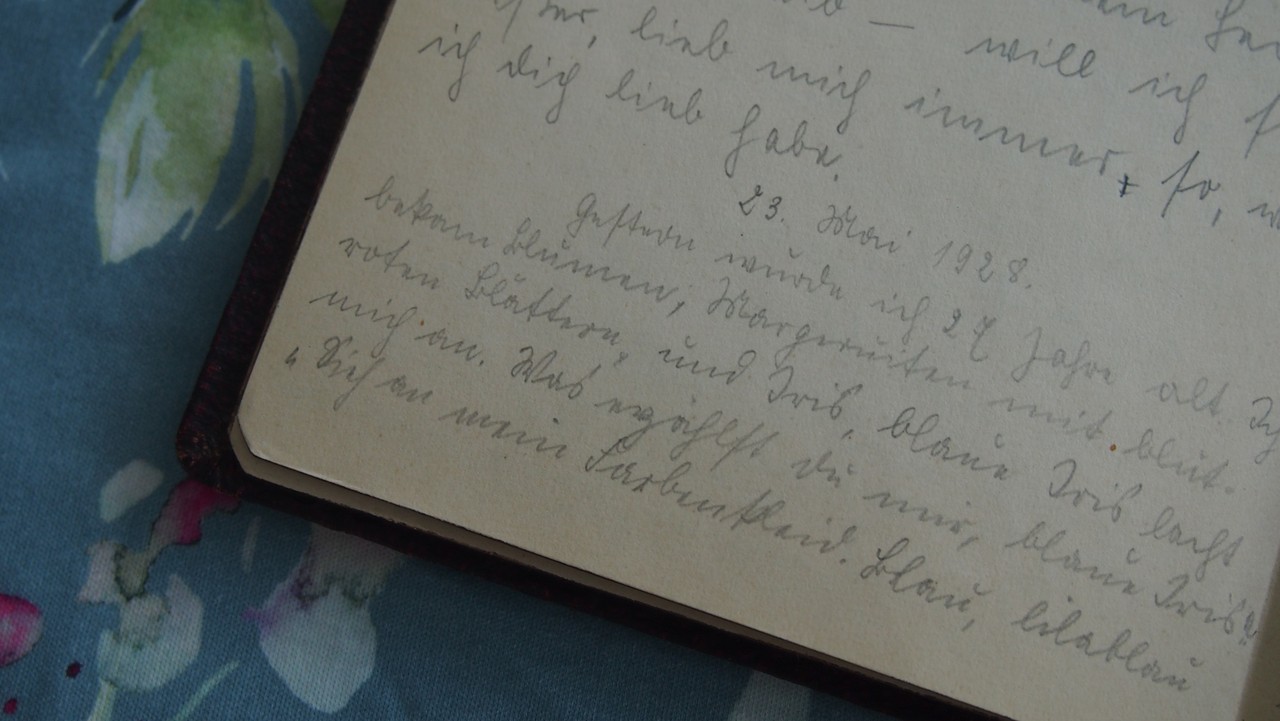 — will ich
lieb mich immer, so,
ich dich lieb habe.
23. Mai 1928.
Gestern wurde ich 27 Jahre alt. Ich
bekam Blumen, Margeruiten mit blut-
roten Blättern, und Iris, blaue Iris lacht
mich an. Was erzählst du mir, blaue Iris?
„Sieh an mein Farbenkleid. Blau, lilablau